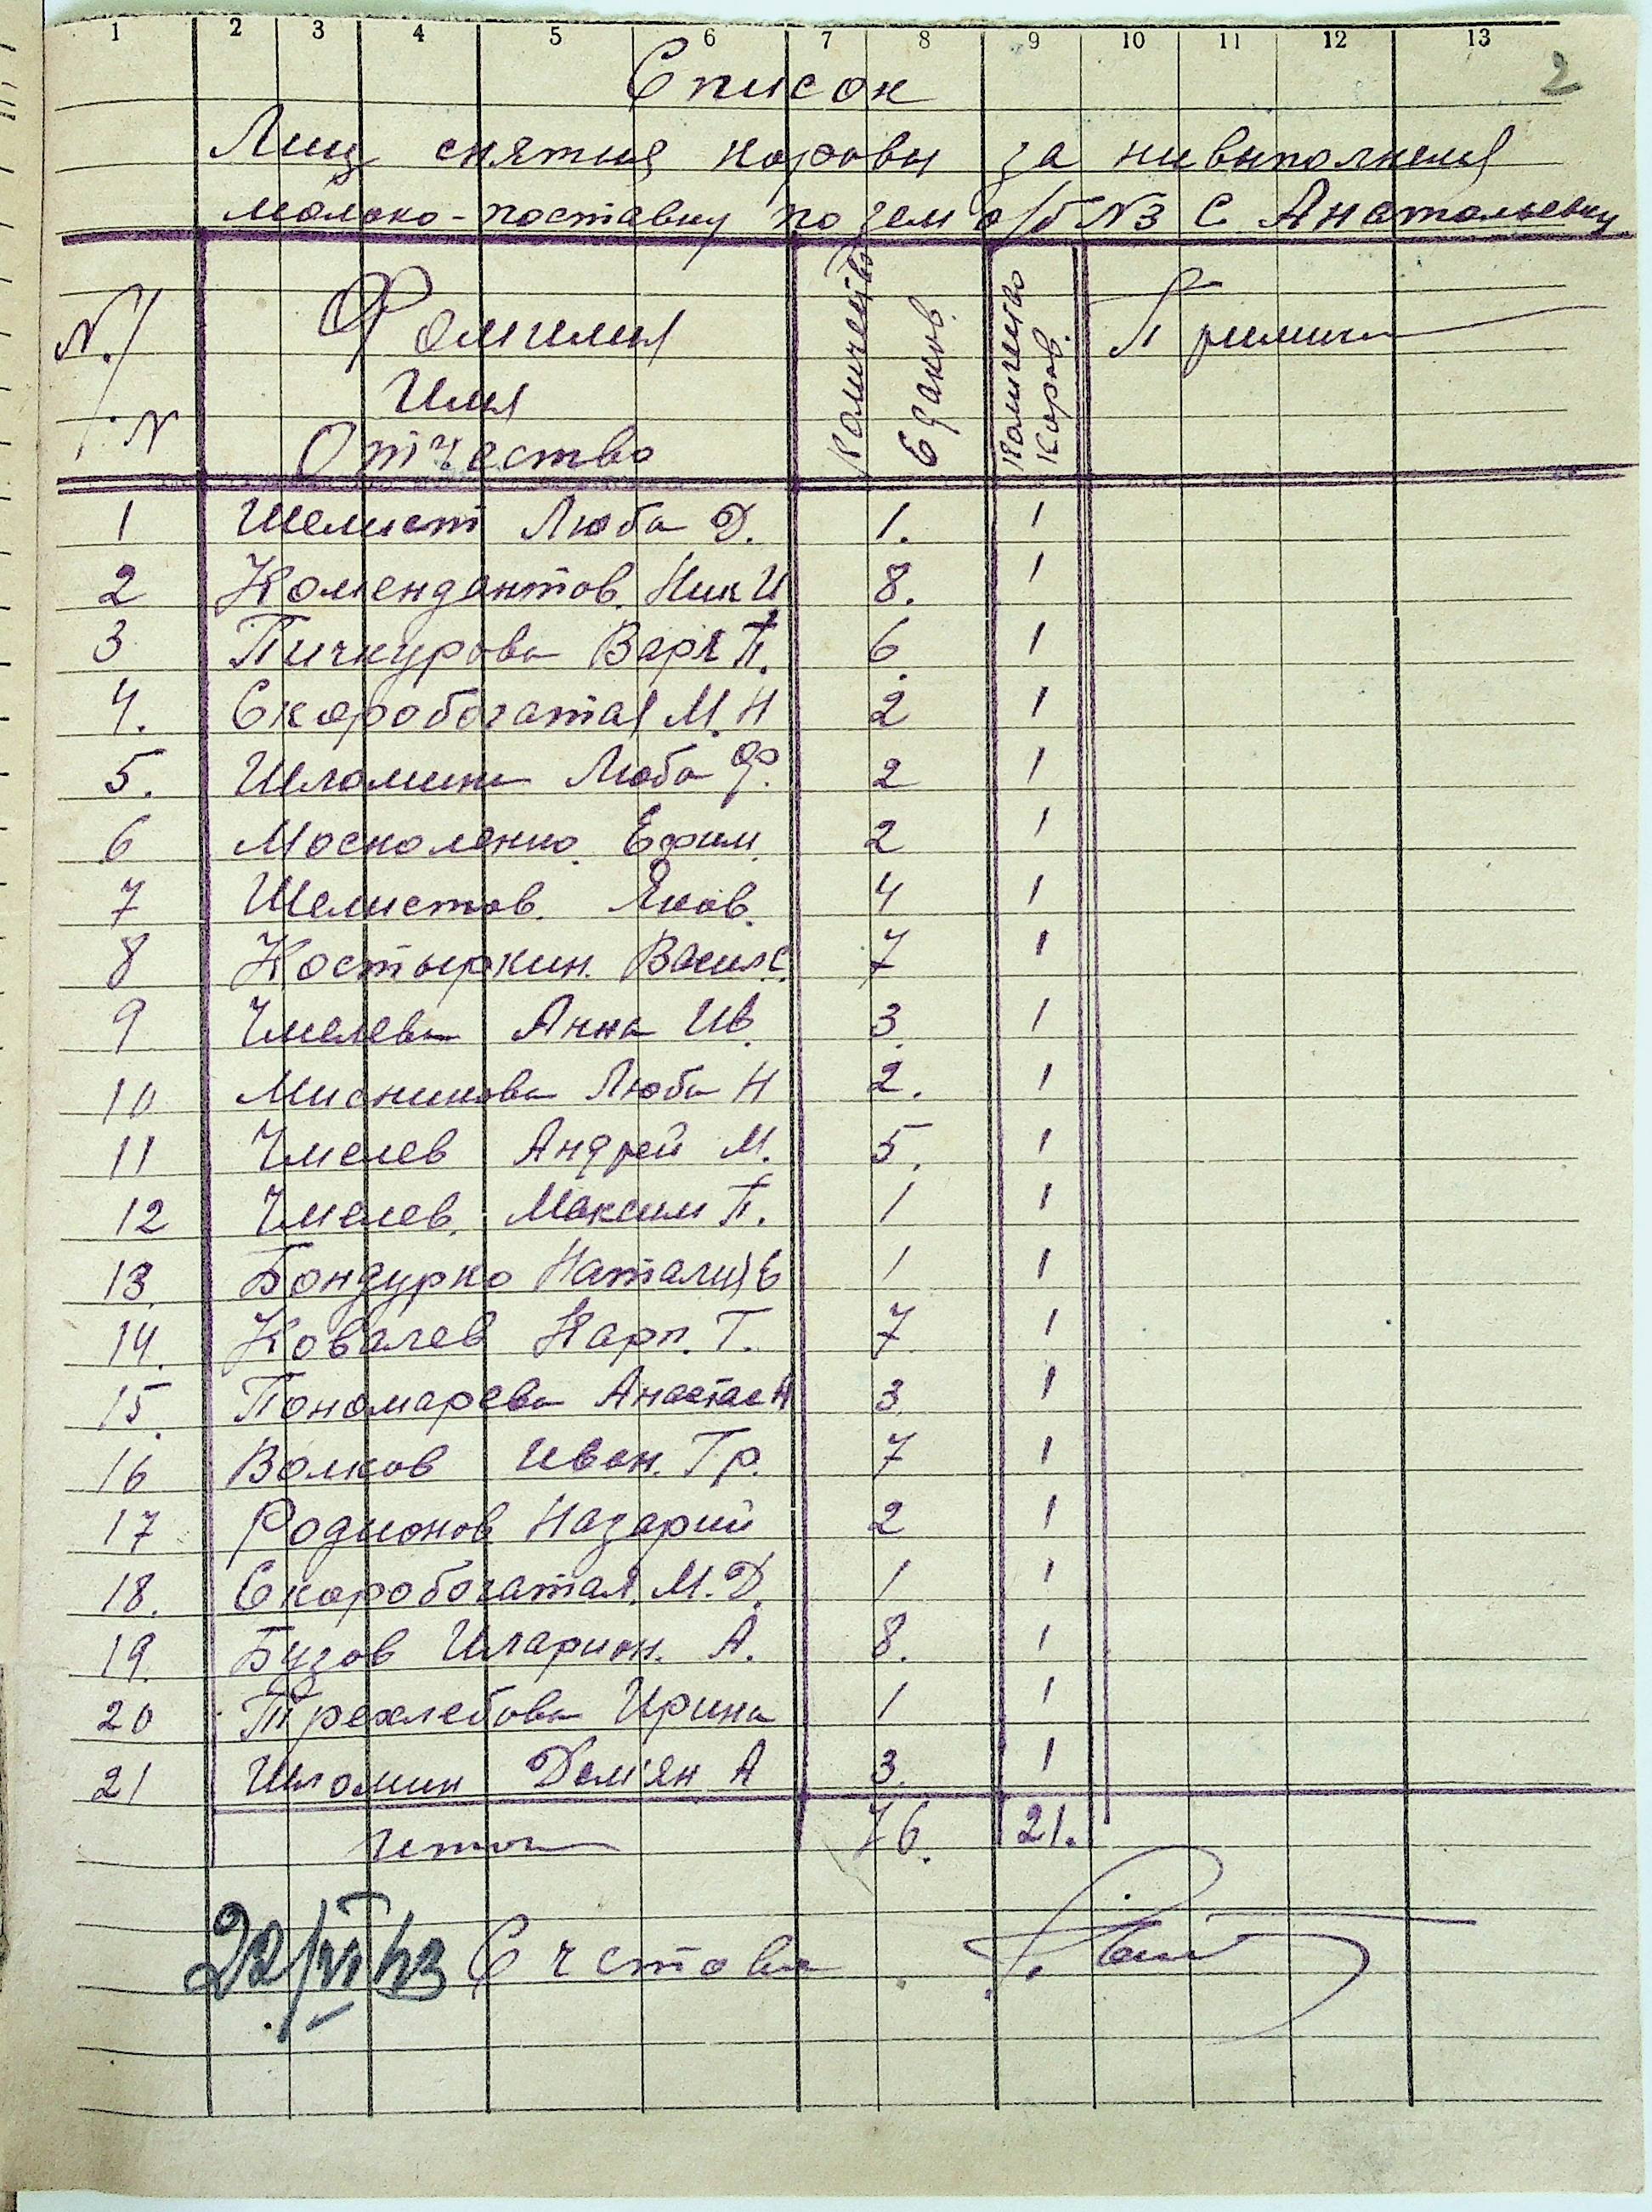 1 2 3 4 5 6 7 8 9 10 11 12 13
2
Список
Лиц снятия коровы за нивыполнения
молоко-поставку по зем о/б №3 С. Анатольевку
N./N Фамилия Имя Отчество Количество Едаков. Количество Коров. Примич
1 Шелист Люба Д. 1. 1
2 Комендантов. Ник И 8. 1
3 Пичкурова Варя П. 6. 1
4. Скоробогатая М. Н 2 1
5. Шломина Люба Ф. 2 1
6 Москоленко. Ефим. 2 1
7 Шелистов. Яков. 4 1
8 Костыркин. Васил С. 7 1
9 Чмелева Анна Ив. 3. 1
10 Мисникова Люба Н 2. 1
11 Чмелев Андрей М. 5. 1
12 Чмелев. Максим П. 1 1
13. Бондурко Наталия Е 1 1
14. Ковалев Карп. Т. 7 1
15. Пономарева Анастас А 3. 1
16 Волков Иван. Гр. 7 1
17 Родионов Назарий 2 1
18. Скоробогатая. М. Д. 1 1
19. Бузов Иларион. А. 8. 1
20 Трехлебова Ирина 1 1
21 Шломин Дем'ян А 3. 1
Итога 76. 21.
22/VI 43 С